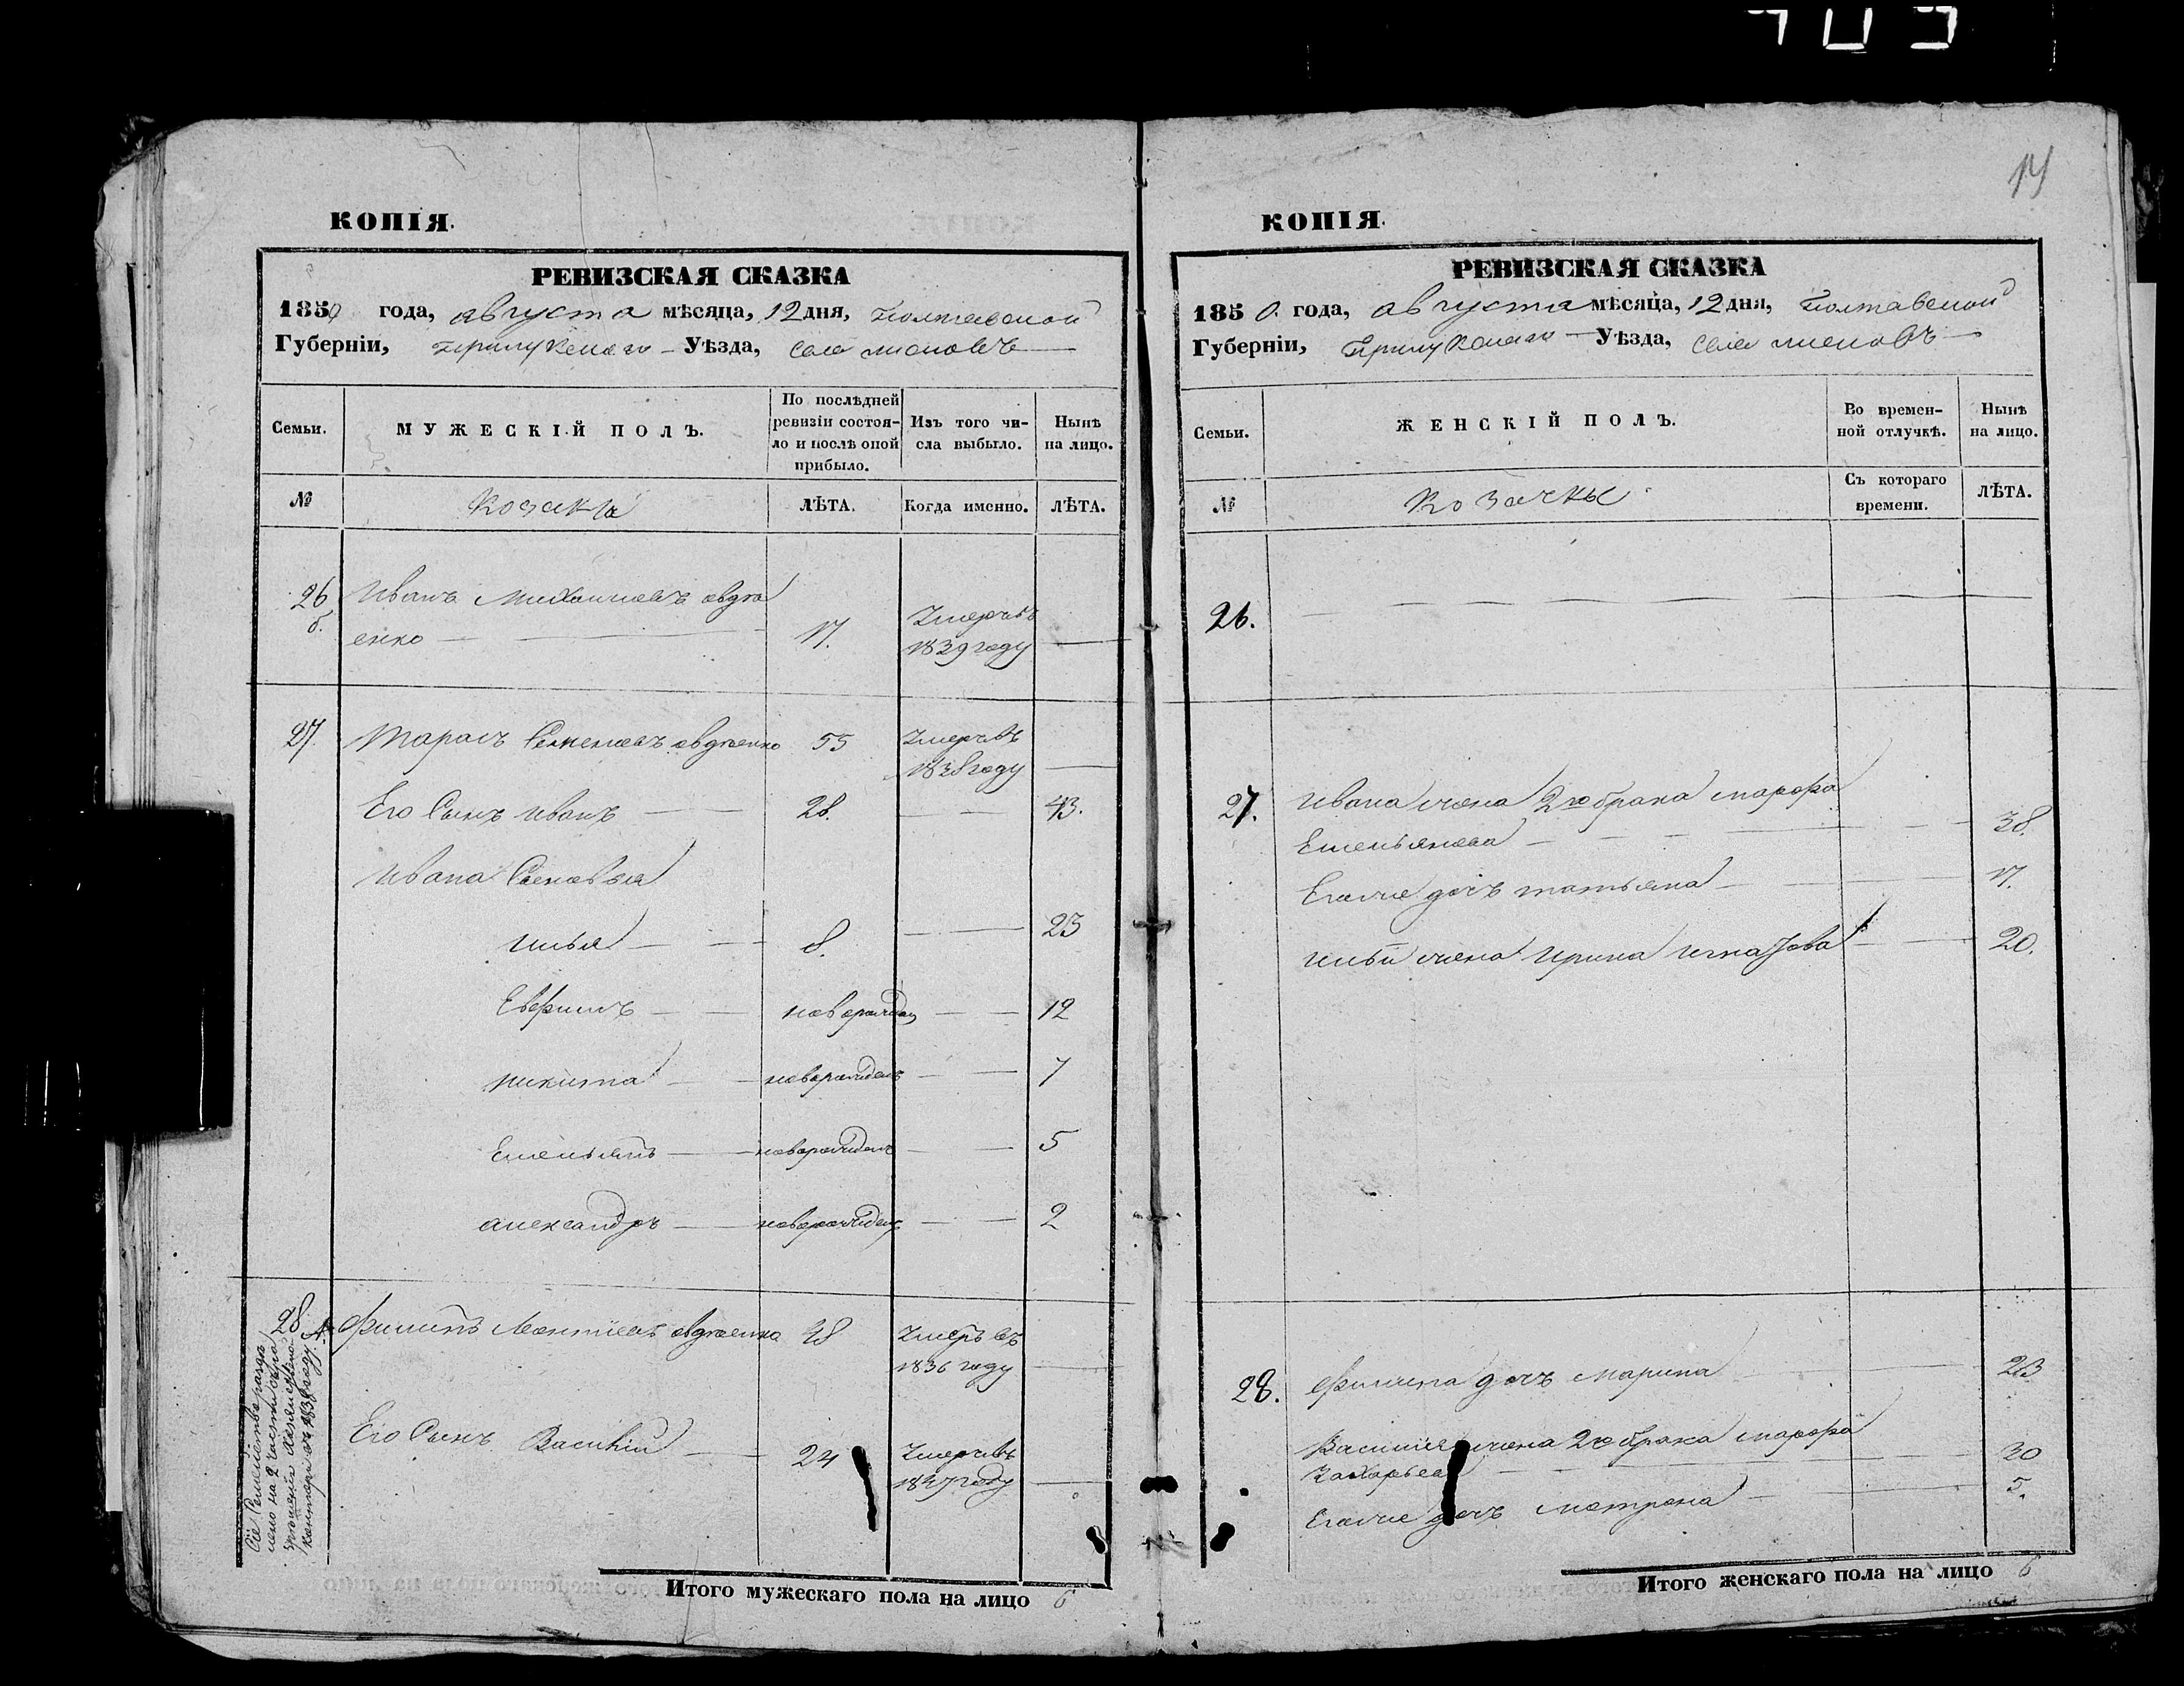 14
КОПІЯ.
РЕВИЗСКАЯ СКАЗКА
1850 года, августа мѣсяца, 12 дня, Полтавской
Губерніи, Прилукскаго — Уѣзда, села
Семьи.
МУЖЕСКІЙ ПОЛЪ.
По послѣдней
ревизіи состоя-
ло и послѣ оной
прибыло.
Изъ того чи-
сла выбыло.
Нынѣ
на лицо.
№
Козаки
ЛѢТА.
Когда именно.
ЛѢТА.
26 Иванъ Михайловъ авдѣ
б. енко — 17. Умеръ въ
1839 году —
27. Тарасъ Семеновъ авдѣенко 55 Умеръ въ
1838 году —
Его Сынъ иванъ — 28. — 43.
Ивана Сыновья
илья — 8. — 23
Евфимъ — новорожден — 12
никита — новорожденъ — 7
Емельянъ — новорожденъ — 5
александръ — новорожденъ — 2
28 Филипъ Леонтіевъ авдѣенко 48 Умеръ въ
1836 году —
Его Сынъ Василій — 24 Умеръ въ
1847 году —
Сіе Семейство раздѣ
лено на 2 части
Итого мужескаго пола на лицо 6
КОПІЯ.
РЕВИЗСКАЯ СКАЗКА
1850. года, августа мѣсяца, 12 дня, Полтавской
Губерніи, Прилукскаго — Уѣзда, села
Семьи.
ЖЕНСКІЙ ПОЛЪ.
Во времен-
ной отлучкѣ.
Нынѣ
на лицо.
№
Козачки
Съ котораго
времени.
ЛѢТА.
26. —
27. Ивана жена 2го брака марфа
Емельянова — 38.
Еяже дочъ татьяна — 17.
ильи жена ирина — 20.
28. Филипа дочъ марина — 23
Василія жена 2го брака марфа
Захарьева — 30
Еяже дочъ мотрона — 5.
Итого женскаго пола на лицо 6